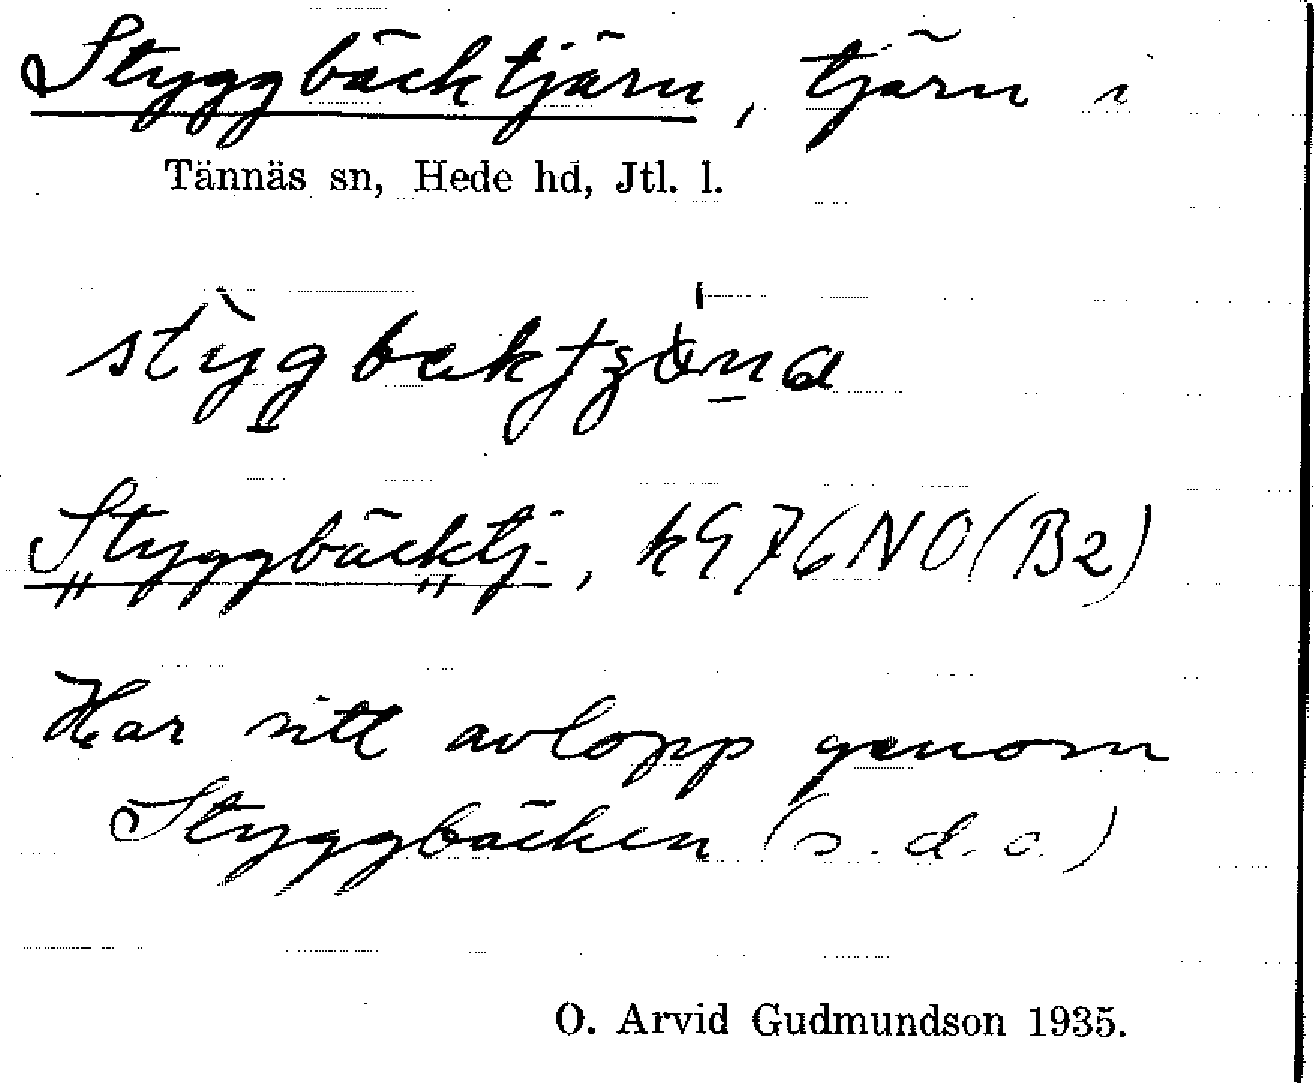 Styggbäcktjärn, tjärn i
Tännäs sn, Hede hd, Jtl. l.
Styggbäcktj., k976NO(B2)
Har sitt avlopp genom
Styggbäcken (s. d. o.)
O. Arvid Gudmundson 1935.